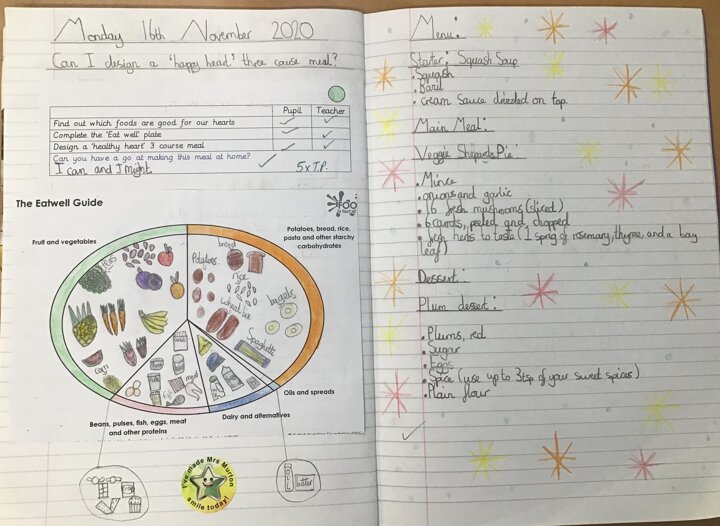 Monday 16th November 2020
Can I design a 'happy heart' three course meal?
Pupil Teacher
Find out which foods are good for our hearts
Complete the 'Eat well' plate
Design a 'healthy heart' 3 course meal
Can you have a go at making this meal at home?
I can and I might.
5xT.P.
The Eatwell Guide
Fruit and vegetables
Potatoes, bread, rice,
pasta and other starchy
carbohydrates
bread
Potatoes
rice
bagels
Spaghetti
corn
meat
Oils and spreads
Dairy and alternatives
Beans, pulses, fish, eggs, meat
and other proteins
OIL
butter
I've made Mrs Murton
smile today!
Menu:
Starter: Squash Soup
• Squash
• Basil
• cream sauce drizzled on top.
Main Meal:
Veggie Sheperds Pie:
• Mince
• onions and garlic
• 16 fresh mushrooms (sliced)
• 6 carrots, peeled and chopped
• fresh herbs to taste (1 sprig of rosemary, thyme, and a bay
leaf)
Dessert:
Plum dessert:
• Plums, red
• Sugar
• Eggs
• Spice (use up to 3tsp of your sweet spices)
• Plain flour